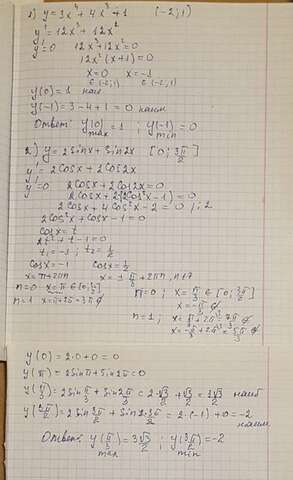 1) y = 3x⁴ + 4x³ + 1   (-2; 1)
y' = 12x³ + 12x²
y' = 0   12x³ + 12x² = 0
12x²(x+1) = 0
x = 0   x = -1
∈ (-2; 1)   ∈ (-2; 1)
y(0) = 1 наиб
y(-1) = 3 - 4 + 1 = 0 наим
Ответ: y(0) max = 1 ; y(-1) min = 0
2) y = 2sinx + sin2x   [0; 3π/2]
y' = 2cosx + 2cos2x
y' = 0   2cosx + 2cos2x = 0
2cosx + 2(2cos²x - 1) = 0
2cosx + 4cos²x - 2 = 0 |:2
2cos²x + cosx - 1 = 0
cosx = t
2t² + t - 1 = 0
t₁ = -1 ; t₂ = 1/2
cosx = -1   cosx = 1/2
x = π + 2πn   x = ± π/3 + 2πn, n∈Z
n = 0   x = π ∈ [0; 3π/2]   n = 0 ; x = π/3 ∈ [0; 3π/2]
x = -π/3 ∅
n = 1   x = π + 2π = 3π ∅   n = 1 ; x = π/3 + 2π = 7π/3 ∅
x = -π/3 + 2π = 5π/3 ∅
y(0) = 2·0 + 0 = 0
y(π) = 2sinπ + sin2π = 0
y(π/3) = 2sin π/3 + sin 2π/3 = 2·√3/2 + √3/2 = 3√3/2 наиб
y(3π/2) = 2sin 3π/2 + sin 2·3π/2 = 2·(-1) + 0 = -2
наим
Ответ: y(π/3) max = 3√3/2 ; y(3π/2) min = -2